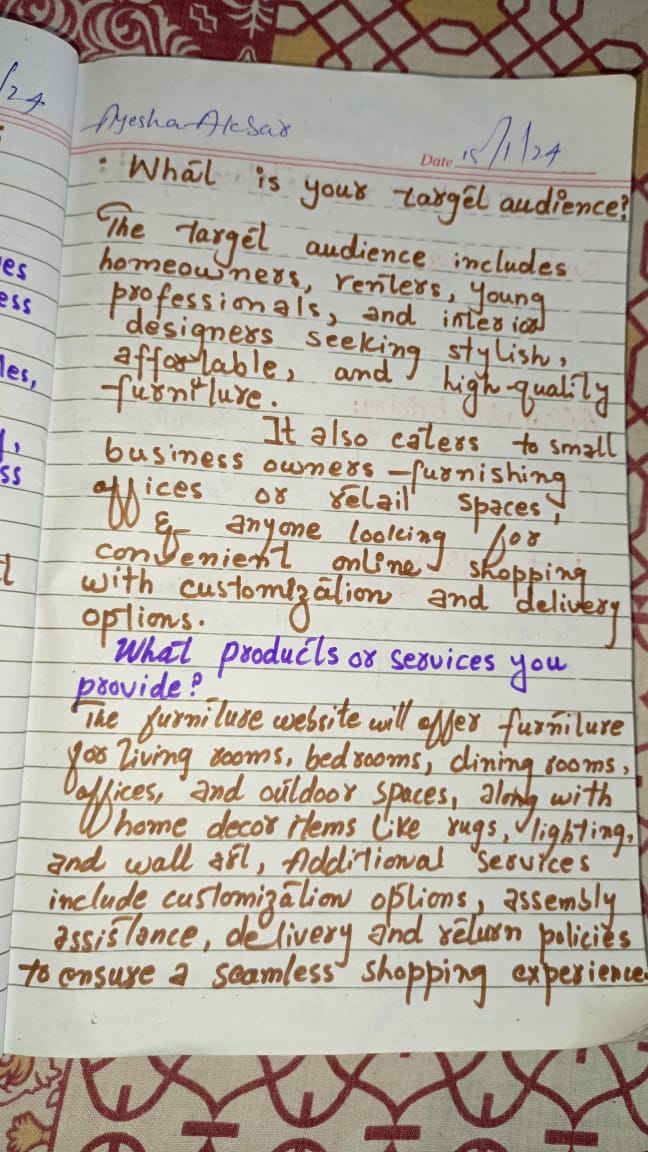 /24
es
ess
les,
ss
Ayesha Aksar
Date 15/1/24
: What is your target audience?
The target audience includes
homeowners, renters, young
professionals, and interior
designers seeking stylish,
affordable, and high-quality
furniture.
It also caters to small
business owners furnishing
offices or retail spaces,
& anyone looking for
convenient online shopping
with customization and delivery
options.
What products or services you
provide?
The furniture website will offer furniture
for living rooms, bedrooms, dining rooms,
offices, and outdoor spaces, along with
home decor items like rugs, lighting,
and wall art, Additional services
include customization options, assembly
assistance, delivery and return policies
to ensure a seamless shopping experience.